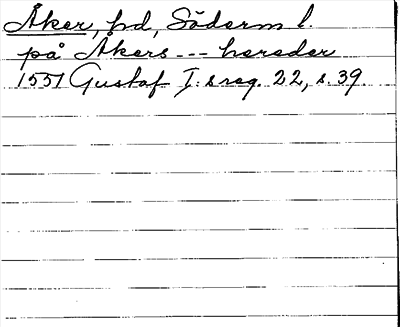 Åker, hd, Söderm l.
på Åkers --- hereder
1551 Gustaf I:s reg. 22, s. 39.